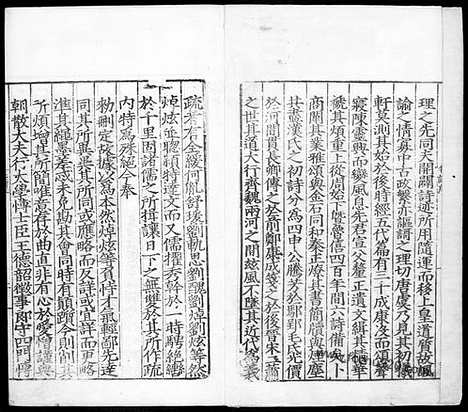 理之先同夫開闢詩迹所用隨運而移上皇道質故諷
諭之情寡中古政繁亦謳謌之理切唐虞乃見其初犧
軒莫測其始於後時經五代篇有三千成康沒而頌聲
寢陳靈興而變風息先君宣父釐正遺文緝其精華
褫其煩重上從周始下曁魯僖四百年間六詩備矣卜
商闡其業雅頌與金石同和秦正燎其書簡牘與煙塵
共盡漢氏之初詩分為四申公騰芳於鄢郢毛氏光價
於河間貫長卿傳之於前鄭康成箋之於後晉宋二蕭
之世其道大行齊魏兩河之間茲風不墜其近代為義
疏者有全緩何胤舒瑗劉軌思劉醜劉焯劉炫等然
焯炫並聰穎特達文而又儒擢秀幹於一時騁絕轡
於千里固諸儒之所揖讓日下之無雙於其所作疏
內特為殊絕今奉
勑刪定故據以為本然焯炫等負恃才氣輕鄙先達
同其所異異其所同或應略而反詳或宜詳而更略
準其繩墨差忒未免勘其會同時有顛躓今則削其
所煩增其所簡唯意存於曲直非有心於愛憎謹與
朝散大夫行太學博士臣王德韶徵事郎守四門博